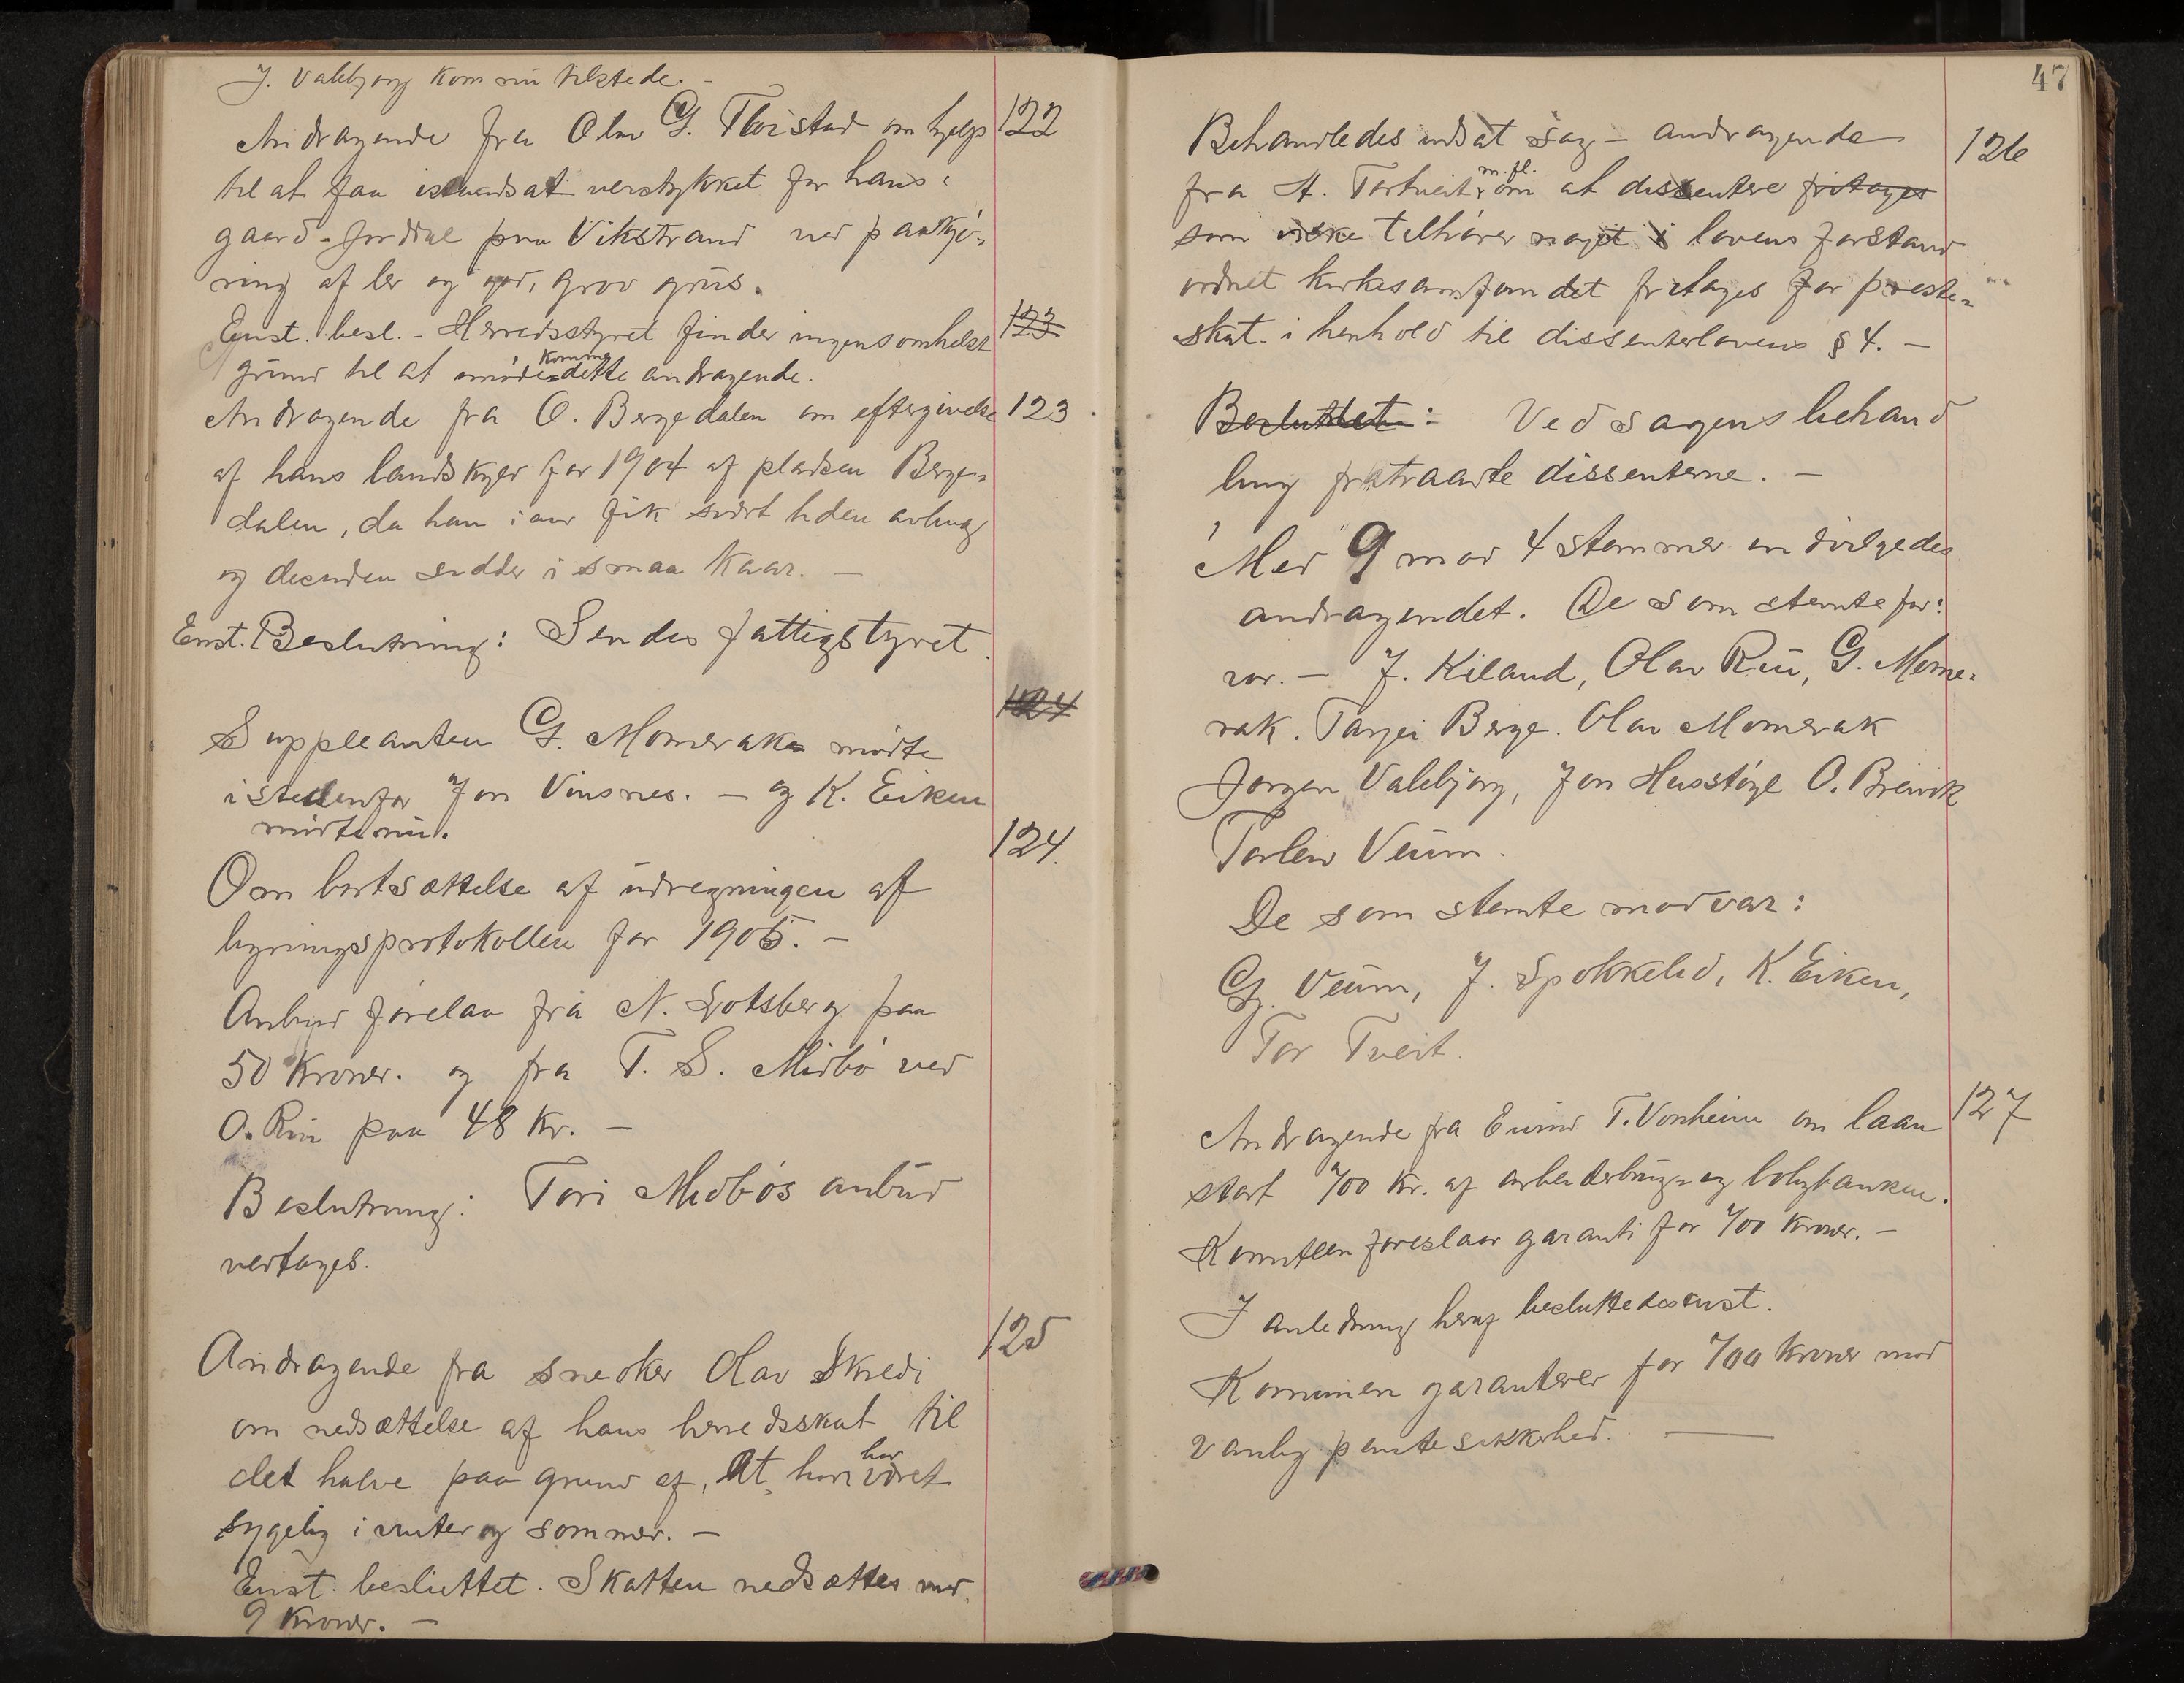 J. Valebjørg kom nu tilstede. -
Andragende fra Olav G. Floistad om hjelp 122
til at faa istandsat veistykket for hans
gaard - fordeel paa Vikstrand ved paakjø-
ring af ler og god, grov grus.
Enst. besl. - Herredsstyret finder ingensomhelst 123
grund til at imøde-komme dette andragende.
Andragende fra O. Bergedalen om eftergivelse 123
af hans landskyld for 1904 af pladsen Berge-
dalen, da han i aar fik svært liden avling
og desuden sidder i smaa kaar. -
Enst. Beslutning: Sendes fattigstyret.
124
Suppleanten G. Momerak mødte
istedenfor Jon Vinsnes. - og K. Eiken
mødte nu.
124.
Om bortsættelse af udregningen af
ligningsprotokollen for 1905. -
Anbud forelaa fra N. Lotsberg paa
50 kroner. og fra T. S. Midbø ved
O. Rui paa 48 kr. -
Beslutning: Tori Midbøs anbud
vedtages.
125
Andragende fra snedker Olav Skredi
om nedsættelse af hans herredsskat til
det halve paa grund af, at han har været
sygelig i vinter og sommer. -
Enst. besluttet. Skatten nedsættes med
9 kroner. -
47
Behandledes indsat sag - andragende 126
fra A. Tortveit m.fl. om at dissentere fritages
som ikke tilhører noget i lovens forstand
ordnet kirkesamfundet fritages for preste-
skat i henhold til dissenterlovens § 4. -
Besluttet: Ved sagens behand
ling fratraadte dissenterne. -
Med 9 mod 4 stemmer indvilgedes
andragendet. De som stemte for:
var. - J. Kiland, Olav Rui, G. Mome-
rak. Tarjei Berge. Olav Momerak
Jørgen Valebjørg, Jon Husstøyl O. Breivik
Torleiv Veum.
De som stemte mod var:
G. Veum, J. Spokkelid, K. Eiken,
Tor Tveit.
Andragende fra Eivind T. Vonheim om laan 127
stort 700 kr. af arbeiderbrug- og boligbanken.
Komiteen foreslaar garanti for 700 kroner. -
I anledning heraf besluttedes enst.
Kommunen garanterer for 700 kroner mod
vanlig pantesikkerhed.